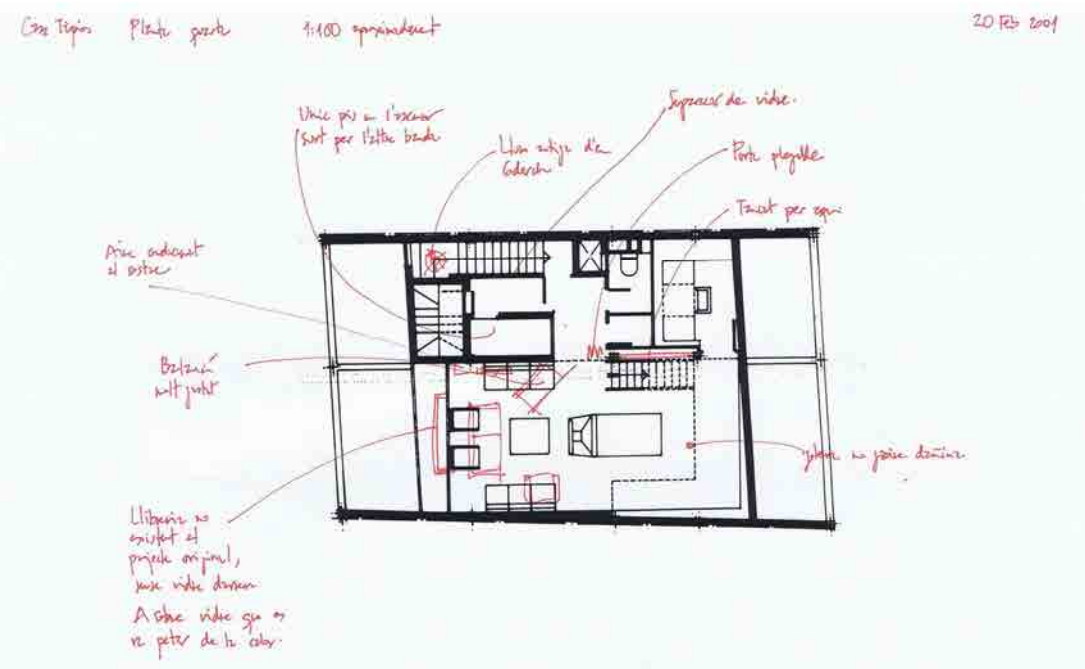 Casa Tàpies Planta quarta 1:100 aproximadament 20 Feb 2001
Únic pis on l'ascensor
surt per l'altre banda
Llum antiga d'en
Coderch
Separador de vidre.
Porta plegable
Tancat per aquí
Aire condicionat
al sostre
Balancí
molt gastat
jàssera no gaire
Llibreria no
existent al
projecte original,
sense vidre darrera
A sobre vidre que es
va petar de la calor.